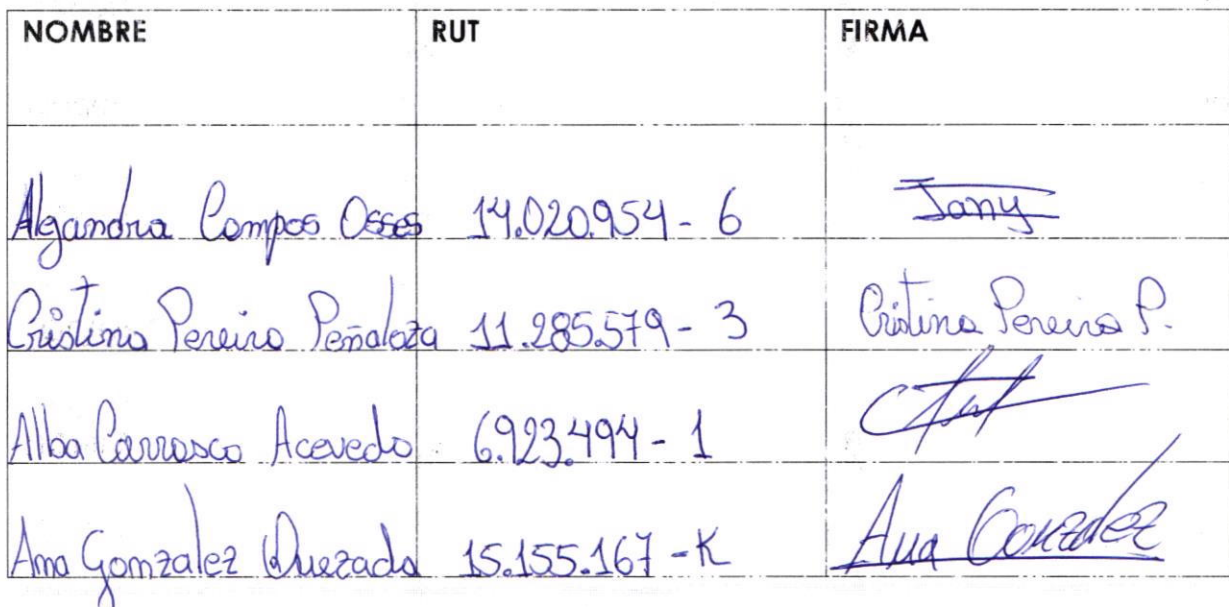 NOMBRE RUT FIRMA
Alejandra Campos Osses 14.020.954-6 Jany
Cristina Pereira Peñaloza 11.285.579-3 Cristina Pereira P.
Alba Carrasco Acevedo 6.923.494-1
Ana Gonzalez Quezada 15.155.167-K Ana Gonzalez